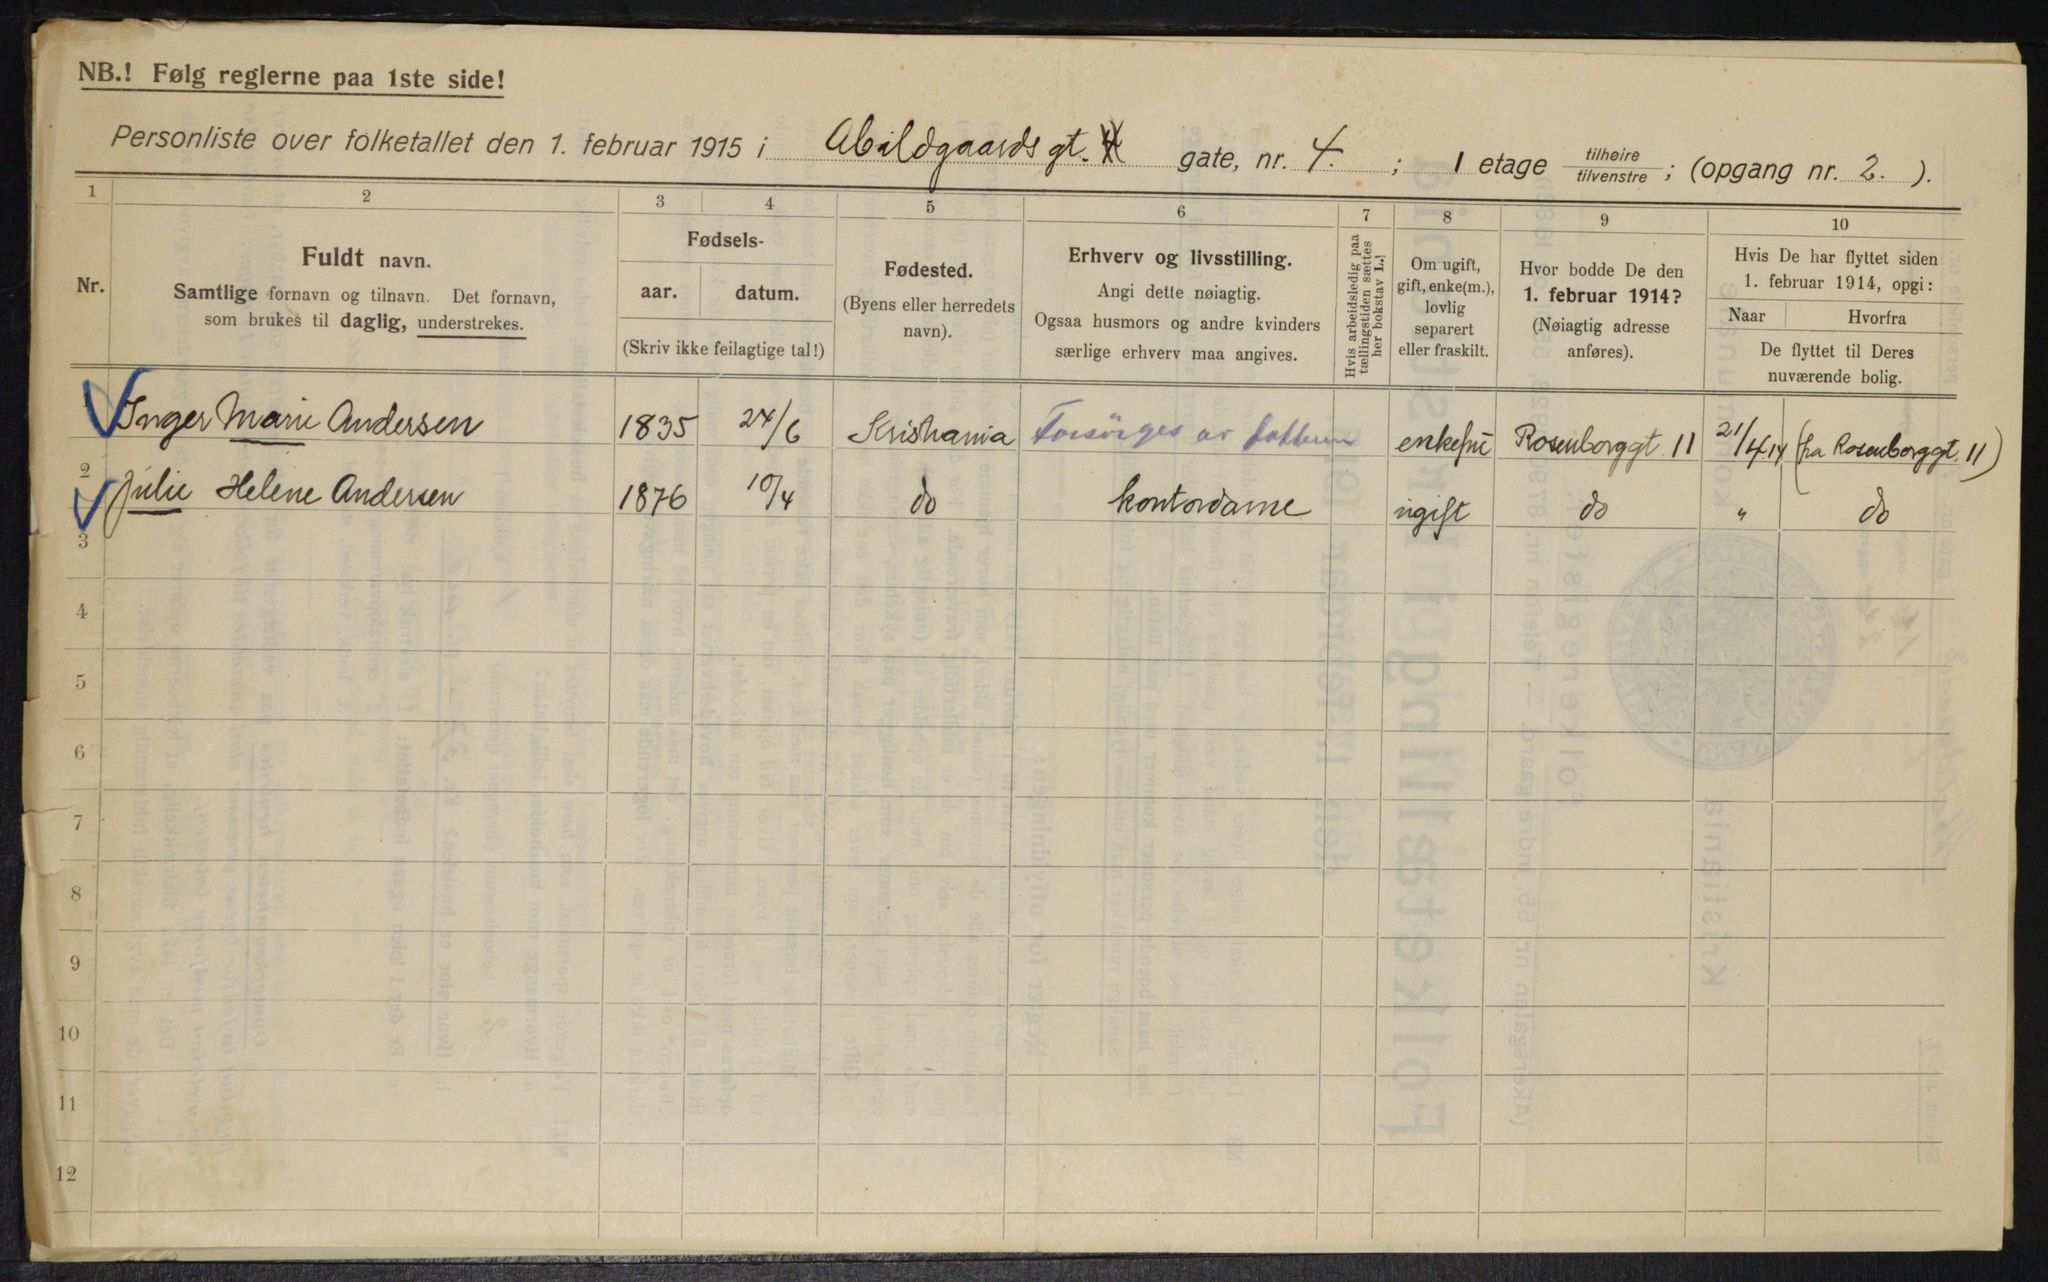 NB.! Følg reglerne paa 1ste side!
Personliste over folketallet den 1. februar 1915 i Abildgaards gt. gate, nr. 4. ; 1 etage tilhøire tilvenstre ; (opgang nr. 2. ).
1 2 3 4 5 6 7 8 9 10
Nr.
Fuldt navn.
Samtlige fornavn og tilnavn. Det fornavn,
som brukes til daglig, understrekes.
Fødsels-
aar. datum.
(Skriv ikke feilagtige tal!)
Fødested.
(Byens eller herredets
navn).
Erhverv og livsstilling.
Angi dette nøiagtig.
Ogsaa husmors og andre kvinders
særlige erhverv maa angives.
Hvis arbeidsledig paa
tællingstiden sættes
her bokstav L.!
Om ugift,
gift, enke(m.),
lovlig
separert
eller fraskilt.
Hvor bodde De den
1. februar 1914?
(Nøiagtig adresse
anføres).
Hvis De har flyttet siden
1. februar 1914, opgi:
Naar Hvorfra
De flyttet til Deres
nuværende bolig.
Inger Marie Andersen 1835 24/6 Kristiania Forsörges av enkefru Rosenborggt. 11 21/4 14 (fra Rosenborggt. 11)
2 Julie Helene Andersen 1876 10/4 do kontordame ugift do " do
3
4
5
6
7
8
9
10
11
12